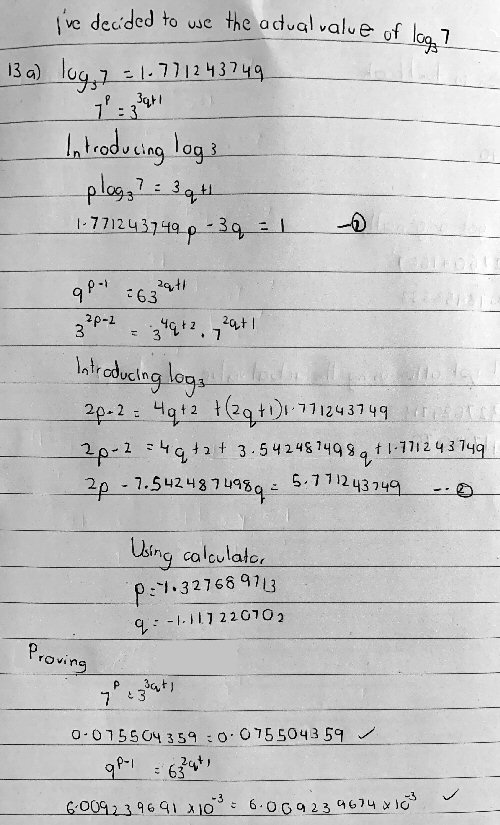 I've decided to use the actual value of log₃7
13a) log₃7 = 1.771243749
7^p = 3^(3q+1)
Introducing log 3
p log₃7 = 3q+1
1.771243749p - 3q = 1 —①
9^(p-1) = 63^(2q+1)
3^(2p-2) = 3^(4q+2) . 7^(2q+1)
Introducing log₃
2p-2 = 4q+2 + (2q+1)1.771243749
2p-2 = 4q+2 + 3.542487498q + 1.771243749
2p - 7.542487498q = 5.771243749 --②
Using calculator
p = -1.327689713
q = -1.117220702
Proving
7^p = 3^(3q+1)
0.075504359 = 0.075504359 ✓
9^(p-1) = 63^(2q+1)
6.009239691 x10^-3 = 6.009239674 x10^-3 ✓